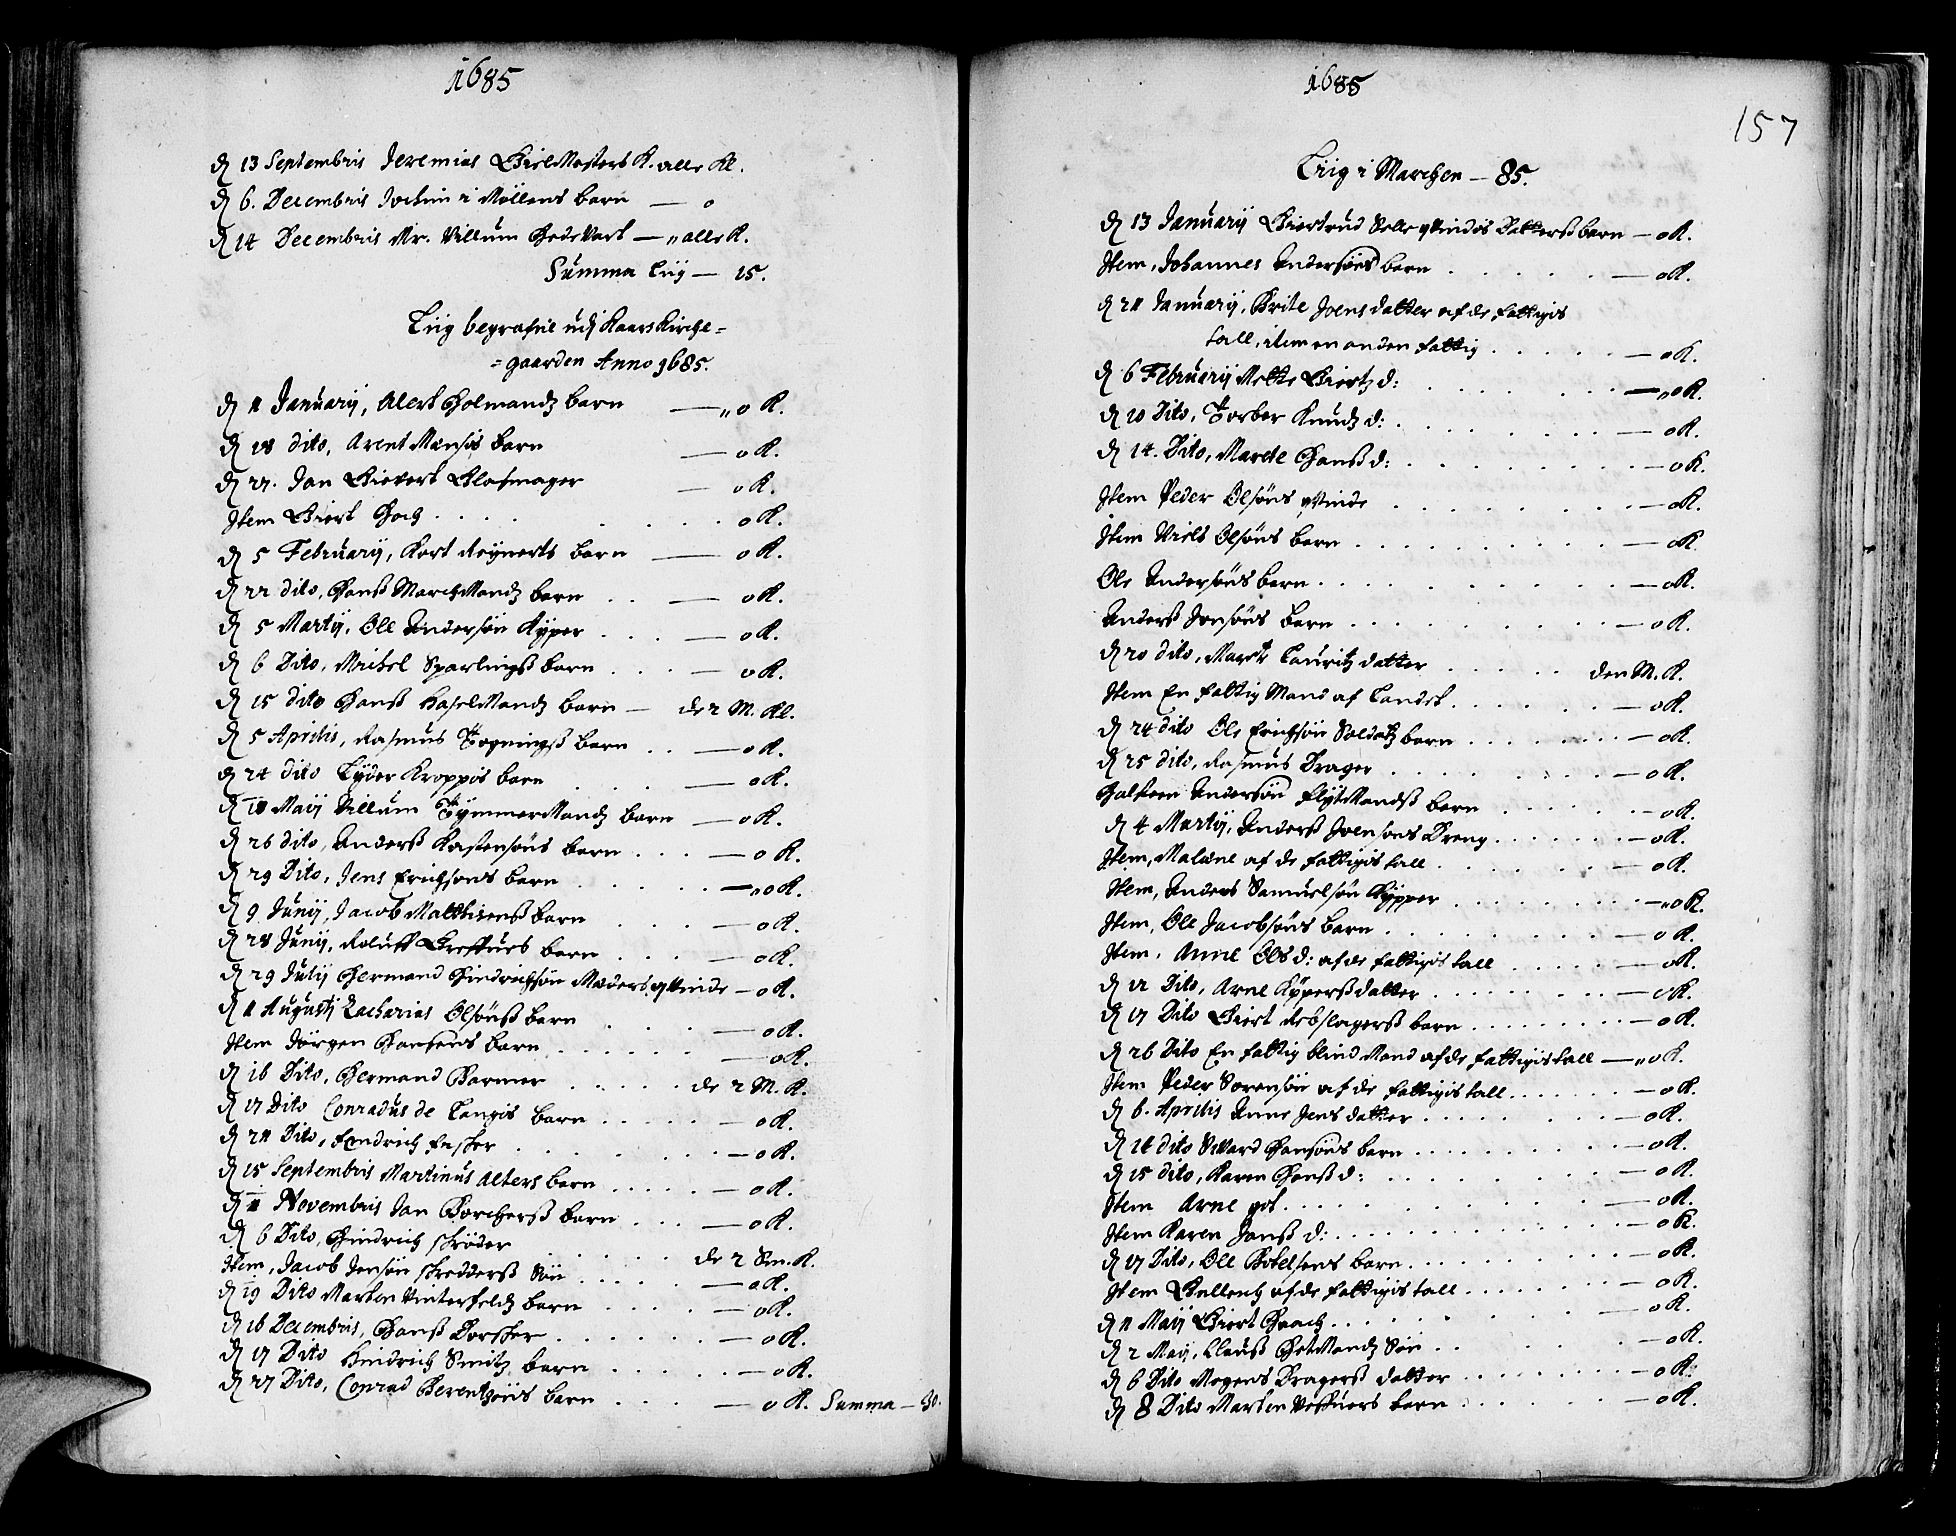 1685
d 13 Septembris Jeremias Giel Mesters K. alle Kl.
d 6. Decembris Jochim i Möllens barn — o
d 14 Decembris Mr. Villum Hede Vart — „ alle K.
Summa Liig — 15.
Liig begrafne udj Kaars Kirche=
=gaarden Anno 1685.
d 11 Januarij, Alert Holmandz barn — „ o K.
d 18 dito, Arent Mensis barn — o K.
d 22. Jan Gievert Glasmager — o K.
Item Giert Hoch — o K.
d 5 Februarij, Kort Reynerts barn — o K.
d 22 dito, Hanß March Mandz barn — o K.
d 5 Martij, Ole Andersön Kyper — o K.
d 6 Dito, Michel Sparlingß barn — o K.
d 15 dito Hanß Hasel Mandz barn — de 2 M. Kl.
d 5 Aprilis, Rasmus Togningß barn — o K.
d 24 dito Lyder Kroppis barn — o K.
d 10 Maij Villum Tymmer Mandz barn — o K.
d 26 dito, Anderß Karstensöns barn — o K.
d 29 Dito, Jens Erichsons barn — o o K.
d 9 Junij, Jacob Matthisenß barn — o K.
d 28 Junij, Roluff Greffues barn — o K.
d 29 Julij Hermand Hindrichsön Maders qvinde — o K.
d 11 Augustj Zacharias Olsönß barn — o K.
Item Jörgen Hansens barn — o K.
d 16 Dito, Hermand Harmer — de 2 M. K.
d 17 Dito Conradus de Langis barn — o K.
d 21 Dito, Hendrich Fester — o K.
d 15 Septembris Martinus Alters barn — o K.
d 11 Novembris Jan Borcherß barn — o K.
d 6 Dito, Hindrich Skröder — de 2 Sm. K.
Item, Jacob Jensön Skredderß Sön — o K.
d 19 Dito Marten Vinterfeldz barn — o K.
d 16 Decembris, Hanß Dorscher — o K.
d 17 Dito Hindrich Smitz barn — o K.
d 27 Dito, Conrad Berentzöns barn — o K. Summa — 30.
1685
157
Liig i Marchen — 85.
d 13 Januarij Giertrud Selle qvindis Datterß barn — o K.
Item, Johannes Andersöns barn — o K.
d 21 Januarij, Brite Joens datter af de fattigis
tall, item en anden fattig — o K.
d 6 Februarij Mette Giertz d: — „ o K.
d 10 Dito, Torber Knudz d: — o K.
d 14. Dito, Marete Hanß d: — o K.
Item Peder Olsöns qvinde — o K.
Item Niels Olsöns barn — o K.
Ole Andersöns barn — o K.
Anderß Jonsöns barn — o K.
d 20 dito, Maret Lauritz datter — den M. K.
Item En fattig Mand af Landet — o K.
d 24 dito Ole Erichsön Soldatz barn — o K.
d 25 dito, Rasmus Drager — o K.
Halsteen Andersön Flyt Mandß barn — o K.
d 4 Martij, Anderß Joensöns Dreng — o K.
Item, Malene af de fattigis tall — o K.
Item, Anders Samuelsön Kypper — „ o K.
Item, Ole Jacobsöns barn — o K.
Item, Anne Ols d: af de fattigis tall — o K.
d 12 Dito, Arne Kyperß datter — o K.
d 17 Dito Giert Rebslagerß barn — o K.
d 26 Dito En fattig blind Mand af de fattigis tall — „ o K.
Item Peder Sorensön af de fattigis tall — o K.
d 6. Aprilis Anne Jens datter — o K.
d 14 dito Sivard Hansöns barn — o K.
d 15 dito, Karen Hanß d: — o K.
Item Arne — o K.
Item Karen Janß d: — o K.
d 17 Dito, Ole Botelsens barn — o K.
Item Gullench af de fattigis tall — o K.
d 11 Maij Giert Haach — o K.
d 2 Maij, Clauß Hot Mandz Sön — o K.
d 6 Dito Mogens Dragerß datter — o K.
d 8 Dito Marten Vefuers barn — o K.